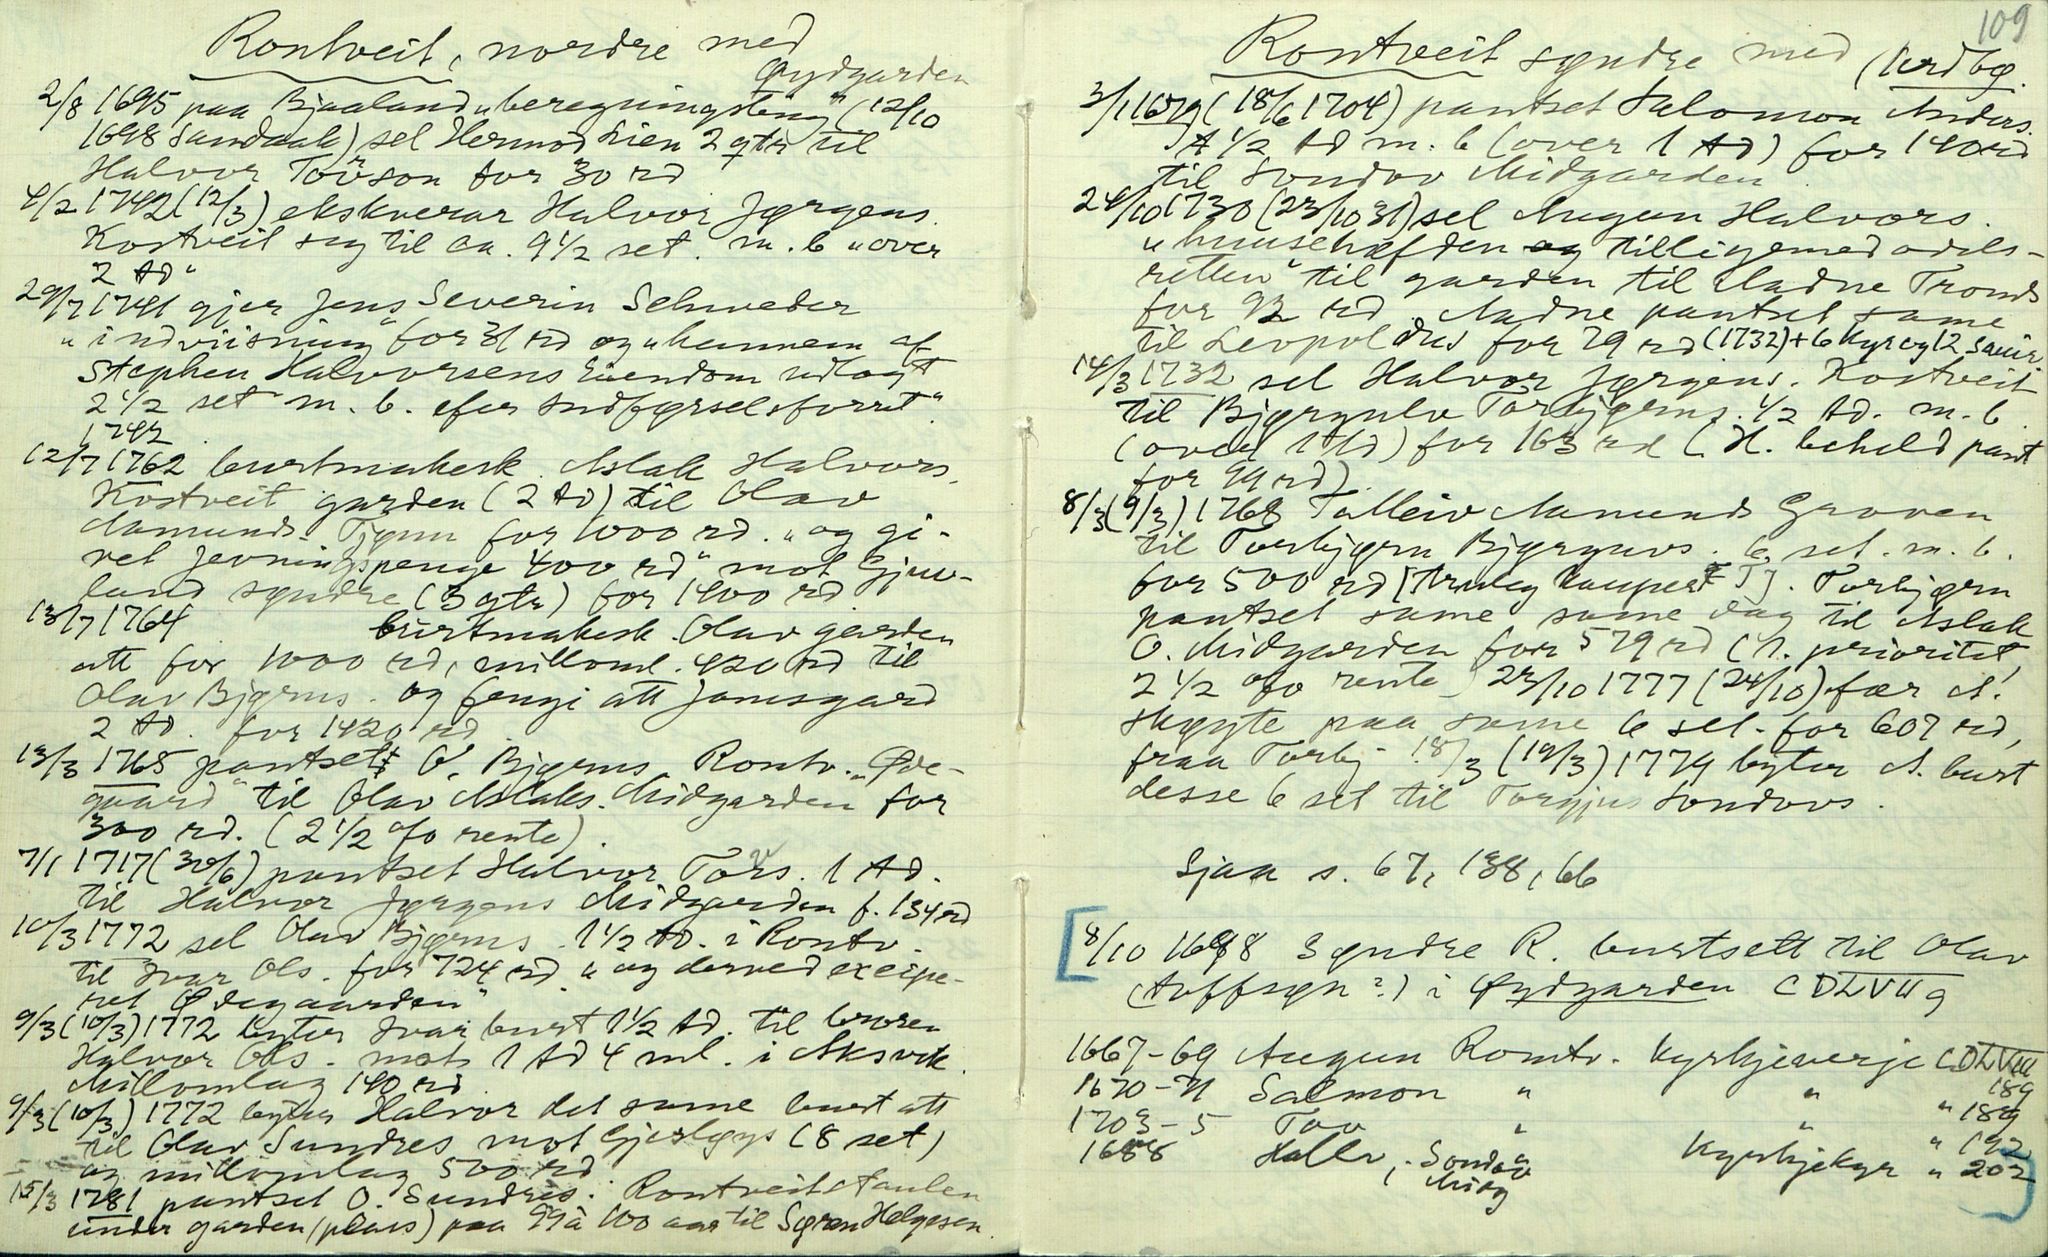 Rontveit, nordre med
Øydgarden
2/8 1695 paa Bjaaland "beregningsting" (12/10
1698 Sandaak) sel Hermod Lien 2 gtr til
Halvor Tovson for 30 rd
4/2 1742 (12/3) ekskverar Halvor Jørgens.
Kostveit seg til aa. 9 1/2 set. m. b. "over
2 td"
29/7 1741 gjer Jens Severin Schweder
"indviisning" for 31 rd og "hannem af
Stephen Halvorsens Eiendom udlagt
2 1/2 set m. b. efter indførselsforret"
1742
12/7 1762 burtmakesk. Aslak Halvors.
Kostveit garden (2 td) til Olav
Aamunds. Tjønn for 1000 rd. "og gi-
vet Jevningspenge 400 rd" mot Gjuv-
land syndre (3 gtr) for 1400 rd.
13/7 1764 burtmakesk. Olav garden
att for 1000 rd, milloml. 420 rd til
Olav Bjørns. og fengi att Jamsgard
2 td. for 1420 rd.
13/3 1765 pantset O. Bjørns Rontv. "Øde-
gaard" til Olav Aslaks. Midgarden for
300 rd. (2 1/2 o/o rente)
7/1 1717 (30/6) pantset Halvor Tovs. 1 td.
til Halvor Jørgens Midgarden f. 134 rd
10/3 1772 sel Olav Bjørns. 1 1/2 td. i Rontv.
til Ivar Ols. for 724 rd. "og derved exeipe-
ret Ødegaarden"
9/3 (10/3) 1772 byter Ivar burt 1 1/2 td. til broren
Halvor Ols. mot 1 td 4 ml. i Aksvik.
Millomlag 140 rd
9/3 (10/3) 1772 byter Halvor det same burt att
til Olav Sundres mot Gjersbøys (8 set)
og millomlag 500 rd
15/3 1781 pantset O. Sundres. Rontveitstaulen
under garden (plass) paa 99 à 100 aar til Søren Helgesen
109
Rontveit syndre med (Jordbø.
3/1 1679 (18/6 1704) pantset Salomon Anders.
1/2 td m. b (over 1 td) for 140 rd
til Sondov Midgarden.
24/10 1730 (23/10 31) sel Augun Halvors.
"huusehæfden og tilligemed odels-
retten" til garden til Aadne Tronds
for 92 rd. Aadne pantset same
til Leopoldus for 79 rd (1732) + 6 Kyr og 12 sauir
14/3 1732 sel Halvor Jørgens. Kostveit
til Bjørgulv Torbjørns. 1/2 td. m. b.
(over 1 td) for 163 rd (H. beheld pant
for 99 rd)
8/3 (9/3) 1768 Talleiv Aamunds Groven
til Torbjørn Bjørguvs. 6 set. m. b.
for 500 rd [truleg kaupest ?]. Torbjørn
pantset same same dag til Aslak
O. Midgarden for 579 rd (1. prioritet,
2 1/2 o/o rente) 23/10 1777 (24/10) fær A.
skøyte paa same 6 set. for 607 rd,
fraa Torbj. 18/3 (19/3) 1779 byter A. burt
desse 6 set til Torgjus Sondovs.
Sjaa s. 67, 138, 66
[8/10 1698 Syndre R. burtsett til Olav
(Aoffsøn?) i Øydgarden CDLVII 9
1667-69 Augun Rontv. Kyrkjeverje CDLVIII
189
1670-71 Salmon " " " 189
1703-5 Tov " " " 192
1688 Hallv, Sondov Midg Kyrkjekyr " 202]